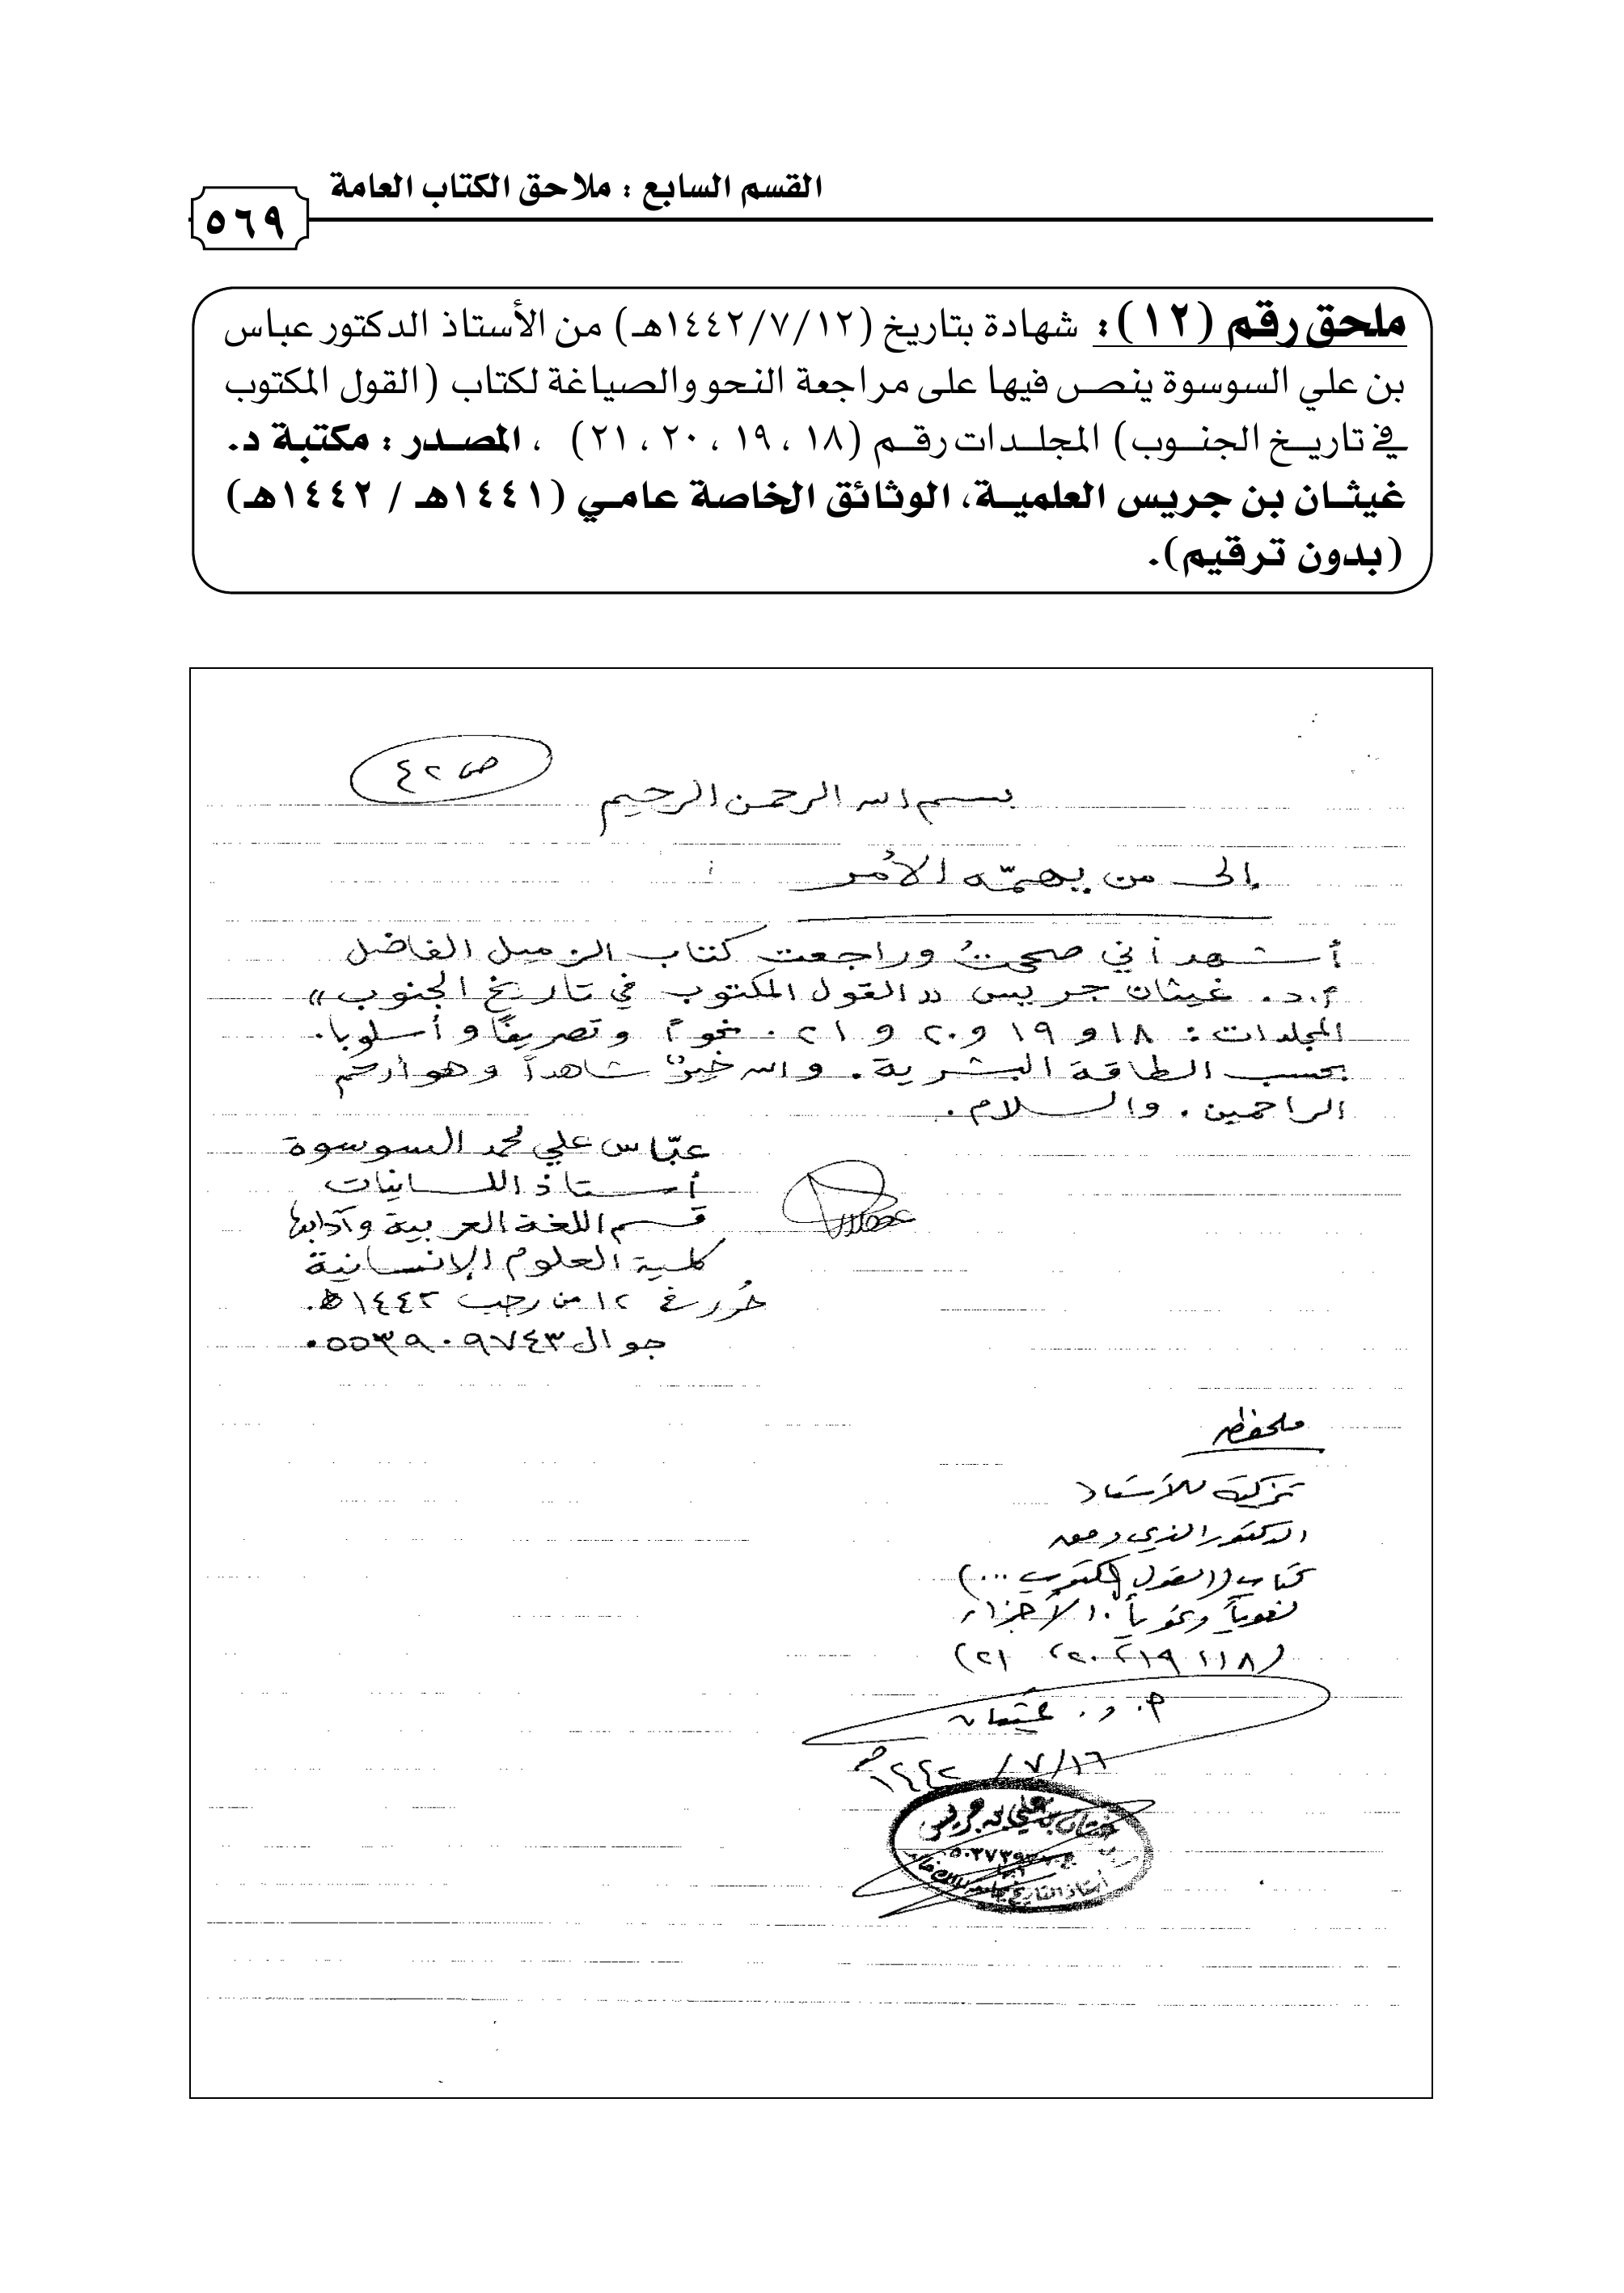 القسم السابع : ملاحق الكتاب العامة
٥٦٩
ملحق رقم (١٢): شهادة بتاريخ (١٤٤٢/٧/١٢هـ) من الأستاذ الدكتور عباس
بن علي السوسوة ينص فيها على مراجعة النحو والصياغة لكتاب (القول المكتوب
في تاريخ الجنوب) المجلدات رقم (١٨ ، ١٩ ، ٢٠ ، ٢١) ، المصدر : مكتبة د.
غيثان بن جريس العلمية، الوثائق الخاصة عامي (١٤٤١هـ / ١٤٤٢هـ)
(بدون ترقيم).
ص ٤٢
بسم الله الرحمن الرحيم
إلى من يهمّه الأمر
أشهد أني صححتُ وراجعت كتاب الزميل الفاضل
أ.د. غيثان جريس «القول المكتوب في تاريخ الجنوب»
المجلدات: ١٨ و ١٩ و ٢٠ و ٢١. نحواً وتصريفًا وأسلوبا.
بحسب الطاقة البشرية. والله خيرٌ شاهداً وهو أرحم
الراحمين. والسلام.
عبّاس علي محمد السوسوة
أستاذ اللسانيات
قسم اللغة العربية وآدابها
كلية العلوم الإنسانية
حُرر في ١٢ من رجب ١٤٤٢ هـ.
جوال ٠٥٥٣٩٠٩٧٤٣
ملحظه
تزكية للأستاذ
الدكتور الذي
كتاب (القول المكتوب ...)
لغوياً ونحوياً. الأجزاء
(١٨، ١٩، ٢٠، ٢١)
أ. د. غيثان
١٤٤٢/٧/١٦هـ
غيثان بن علي بن جريس
أستاذ التاريخ